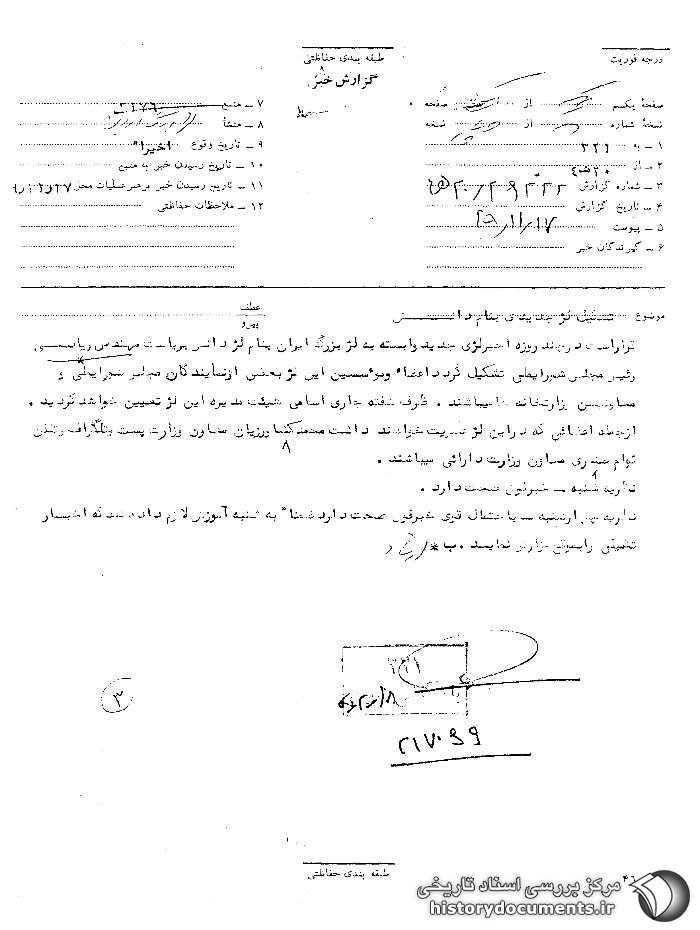 درجه فوریت
طبقه بندی حفاظتی
گزارش خبر
صفحهٔ یکم از صفحه
نسخهٔ شماره از نسخه
۱ ــ به ۳۲۱
۲ ــ از
۳ ــ شماره گزارش
۴ ــ تاریخ گزارش
۵ ــ پیوست
۶ ــ گیرندگان خبر
۷ ــ منبع
۸ ــ منشأ
۹ ــ تاریخ وقوع اخیرا"
۱۰ ــ تاریخ رسیدن خبر به منبع
۱۱ ــ تاریخ رسیدن خبر برهبر عملیات محل
۱۲ ــ ملاحظات حفاظتی
موضوع تشکیل لژ جدیدی بنام دانش
عطف
پیرو
قراراست درچند روزه اخیرلژی جدید وابسته به لژ بزرگ ایران بنام لژ دانش بریاست مهندس ریاضی
رئیس مجلس شورایملی تشکیل گردد اعضاء وموسسین این لژ بعضی ازنمایندگان مجلس شورایملی و
معاونین وزارتخانه ها میباشند . ظرف هفته جاری اسامی هیئت مدیره این لژ تعیین خواهد گردید .
ازجمله اعضائی که دراین لژ عضویت خواهند داشت محمد کشاورزیان معاون وزارت پست وتلگراف وتلفن
معاون وزارت دارائی میباشند .
نظریه شنبه ــ خبرفوق صحت دارد .
نظریه چهارشنبه ــ با احتمال قوی خبرفوق صحت دارد ضمنا" به شنبه آموزش لازم داده شد که اخبار
تکمیلی را بموقع گزارش نماید . ب *
۳۲۱
۳
۲۱۷۰۹۹
طبقه بندی حفاظتی
مرکز بررسی اسناد تاریخی
historydocuments.ir